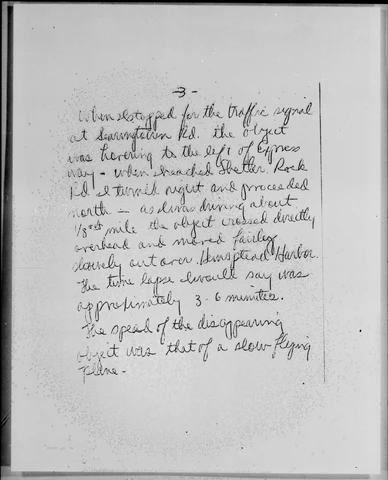 - 3 -
When I stopped for the traffic signal
at Searingtown Rd. the object
was hovering to the left of Express
way - when I reached Shelter Rock
Rd I turned right and proceeded
north - as I was driving about
1/3 rd mile the object crossed directly
overhead and moved fairly
slowly out over Hempstead Harbor.
The time lapse I would say was
approximately 3-6 minutes.
The speed of the disappearing
object was that of a slow flying
plane -